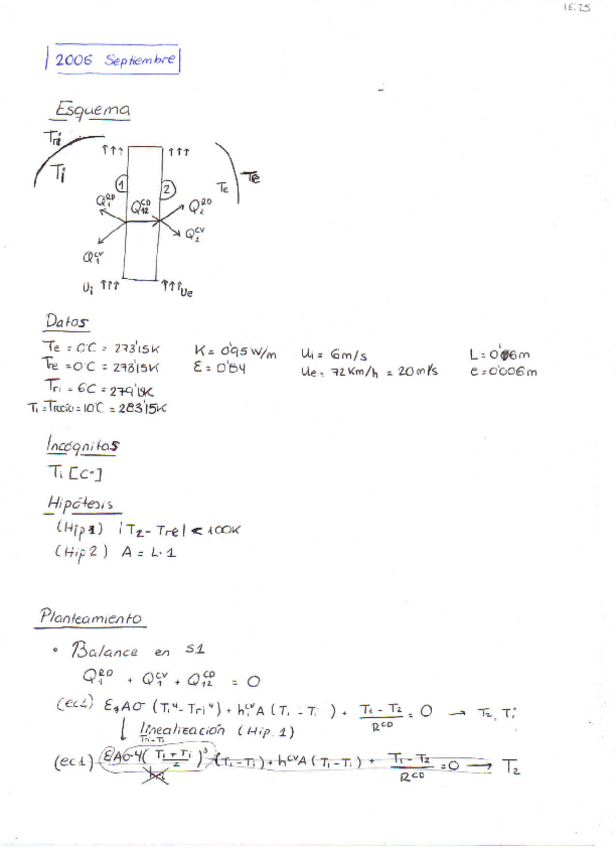 15:25
2006 Septiembre
Esquema
Tri
Ti
↑↑↑ ↑↑↑
1 2
Te Te
Q1^RD Q12^CD Q2^RD
Q1^CV Q2^CV
Ui ↑↑↑ ↑↑↑ Ue
Datos
Te = 0°C = 273'15K K = 0'95 W/m Ui = 6m/s L = 0'06m
Tre = 0°C = 273'15K ε = 0'84 Ue = 72 Km/h = 20 m/s e = 0'006m
Tri = 6C = 279'15K
T1 = Trocío = 10°C = 283'15K
Incógnitas
Ti [C°]
Hipótesis
(Hip 1) |T2 - Tre| < 100K
(Hip 2) A = L·1
Planteamiento
• Balance en S1
Q1^RD + Q1^CV + Q12^CD = 0
(ec1) ε1Aσ (T1^4 - Tri^4) + hi^CV A (T1 - Ti) + (T1 - T2)/R^CD = 0 → T2, Ti
↓ linealización (Hip. 1)
(ec1) εAσ4((T1 + Ti)/2)^3 (T1 - Ti) + h^CV A (T1 - Ti) + (T1 - T2)/R^CD = 0 → T2